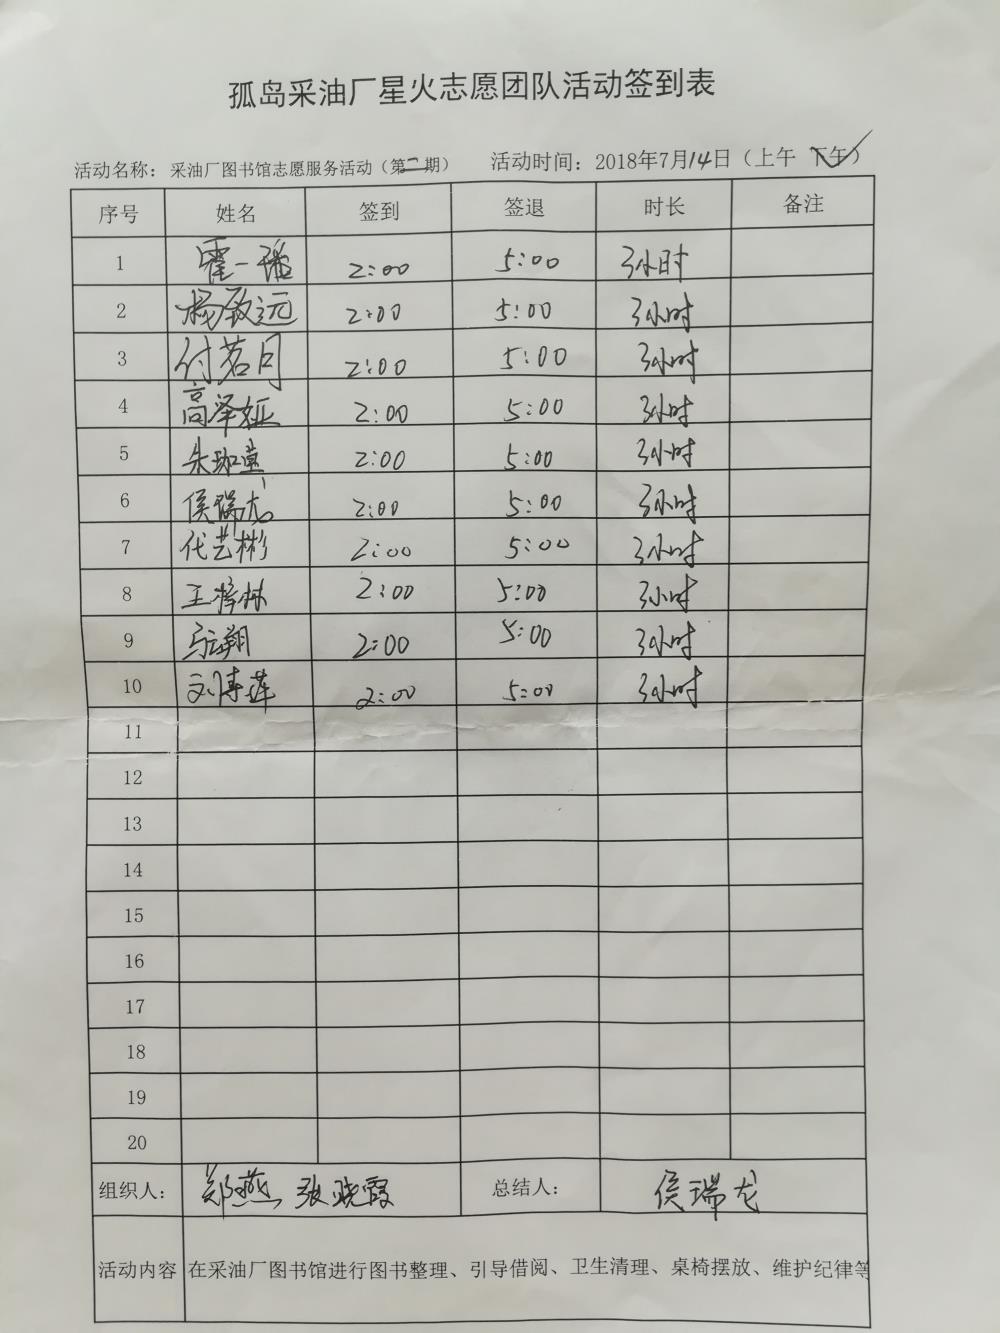 孤岛采油厂星火志愿团队活动签到表
活动名称： 采油厂图书馆志愿服务活动（第二期） 活动时间：2018年7月14日（上午 下午）
序号 姓名 签到 签退 时长 备注
1 霍一诺 2:00 5:00 3小时
2 杨致远 2:00 5:00 3小时
3 付茗月 2:00 5:00 3小时
4 高泽娅 2:00 5:00 3小时
5 朱珈萱 2:00 5:00 3小时
6 侯瑞龙 2:00 5:00 3小时
7 代艺彬 2:00 5:00 3小时
8 王梓林 2:00 5:00 3小时
9 2:00 5:00 3小时
10 刘博莲 2:00 5:00 3小时
11
12
13
14
15
16
17
18
19
20
组织人： 郑燕 张晓霞 总结人： 侯瑞龙
活动内容 在采油厂图书馆进行图书整理、引导借阅、卫生清理、桌椅摆放、维护纪律等